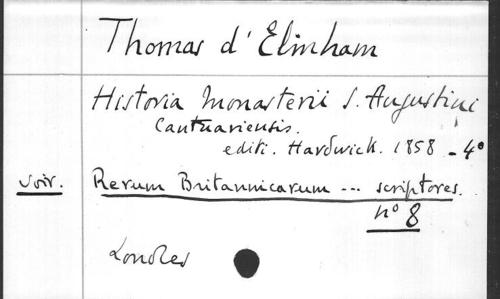 Thomas d'Elmham
Historia Monasterii S. Augustini
Cantuariensis.
editi. Hardwick. 1858 - 4°
Voir. Rerum Britannicarum ... scriptores.
n° 8
Londres